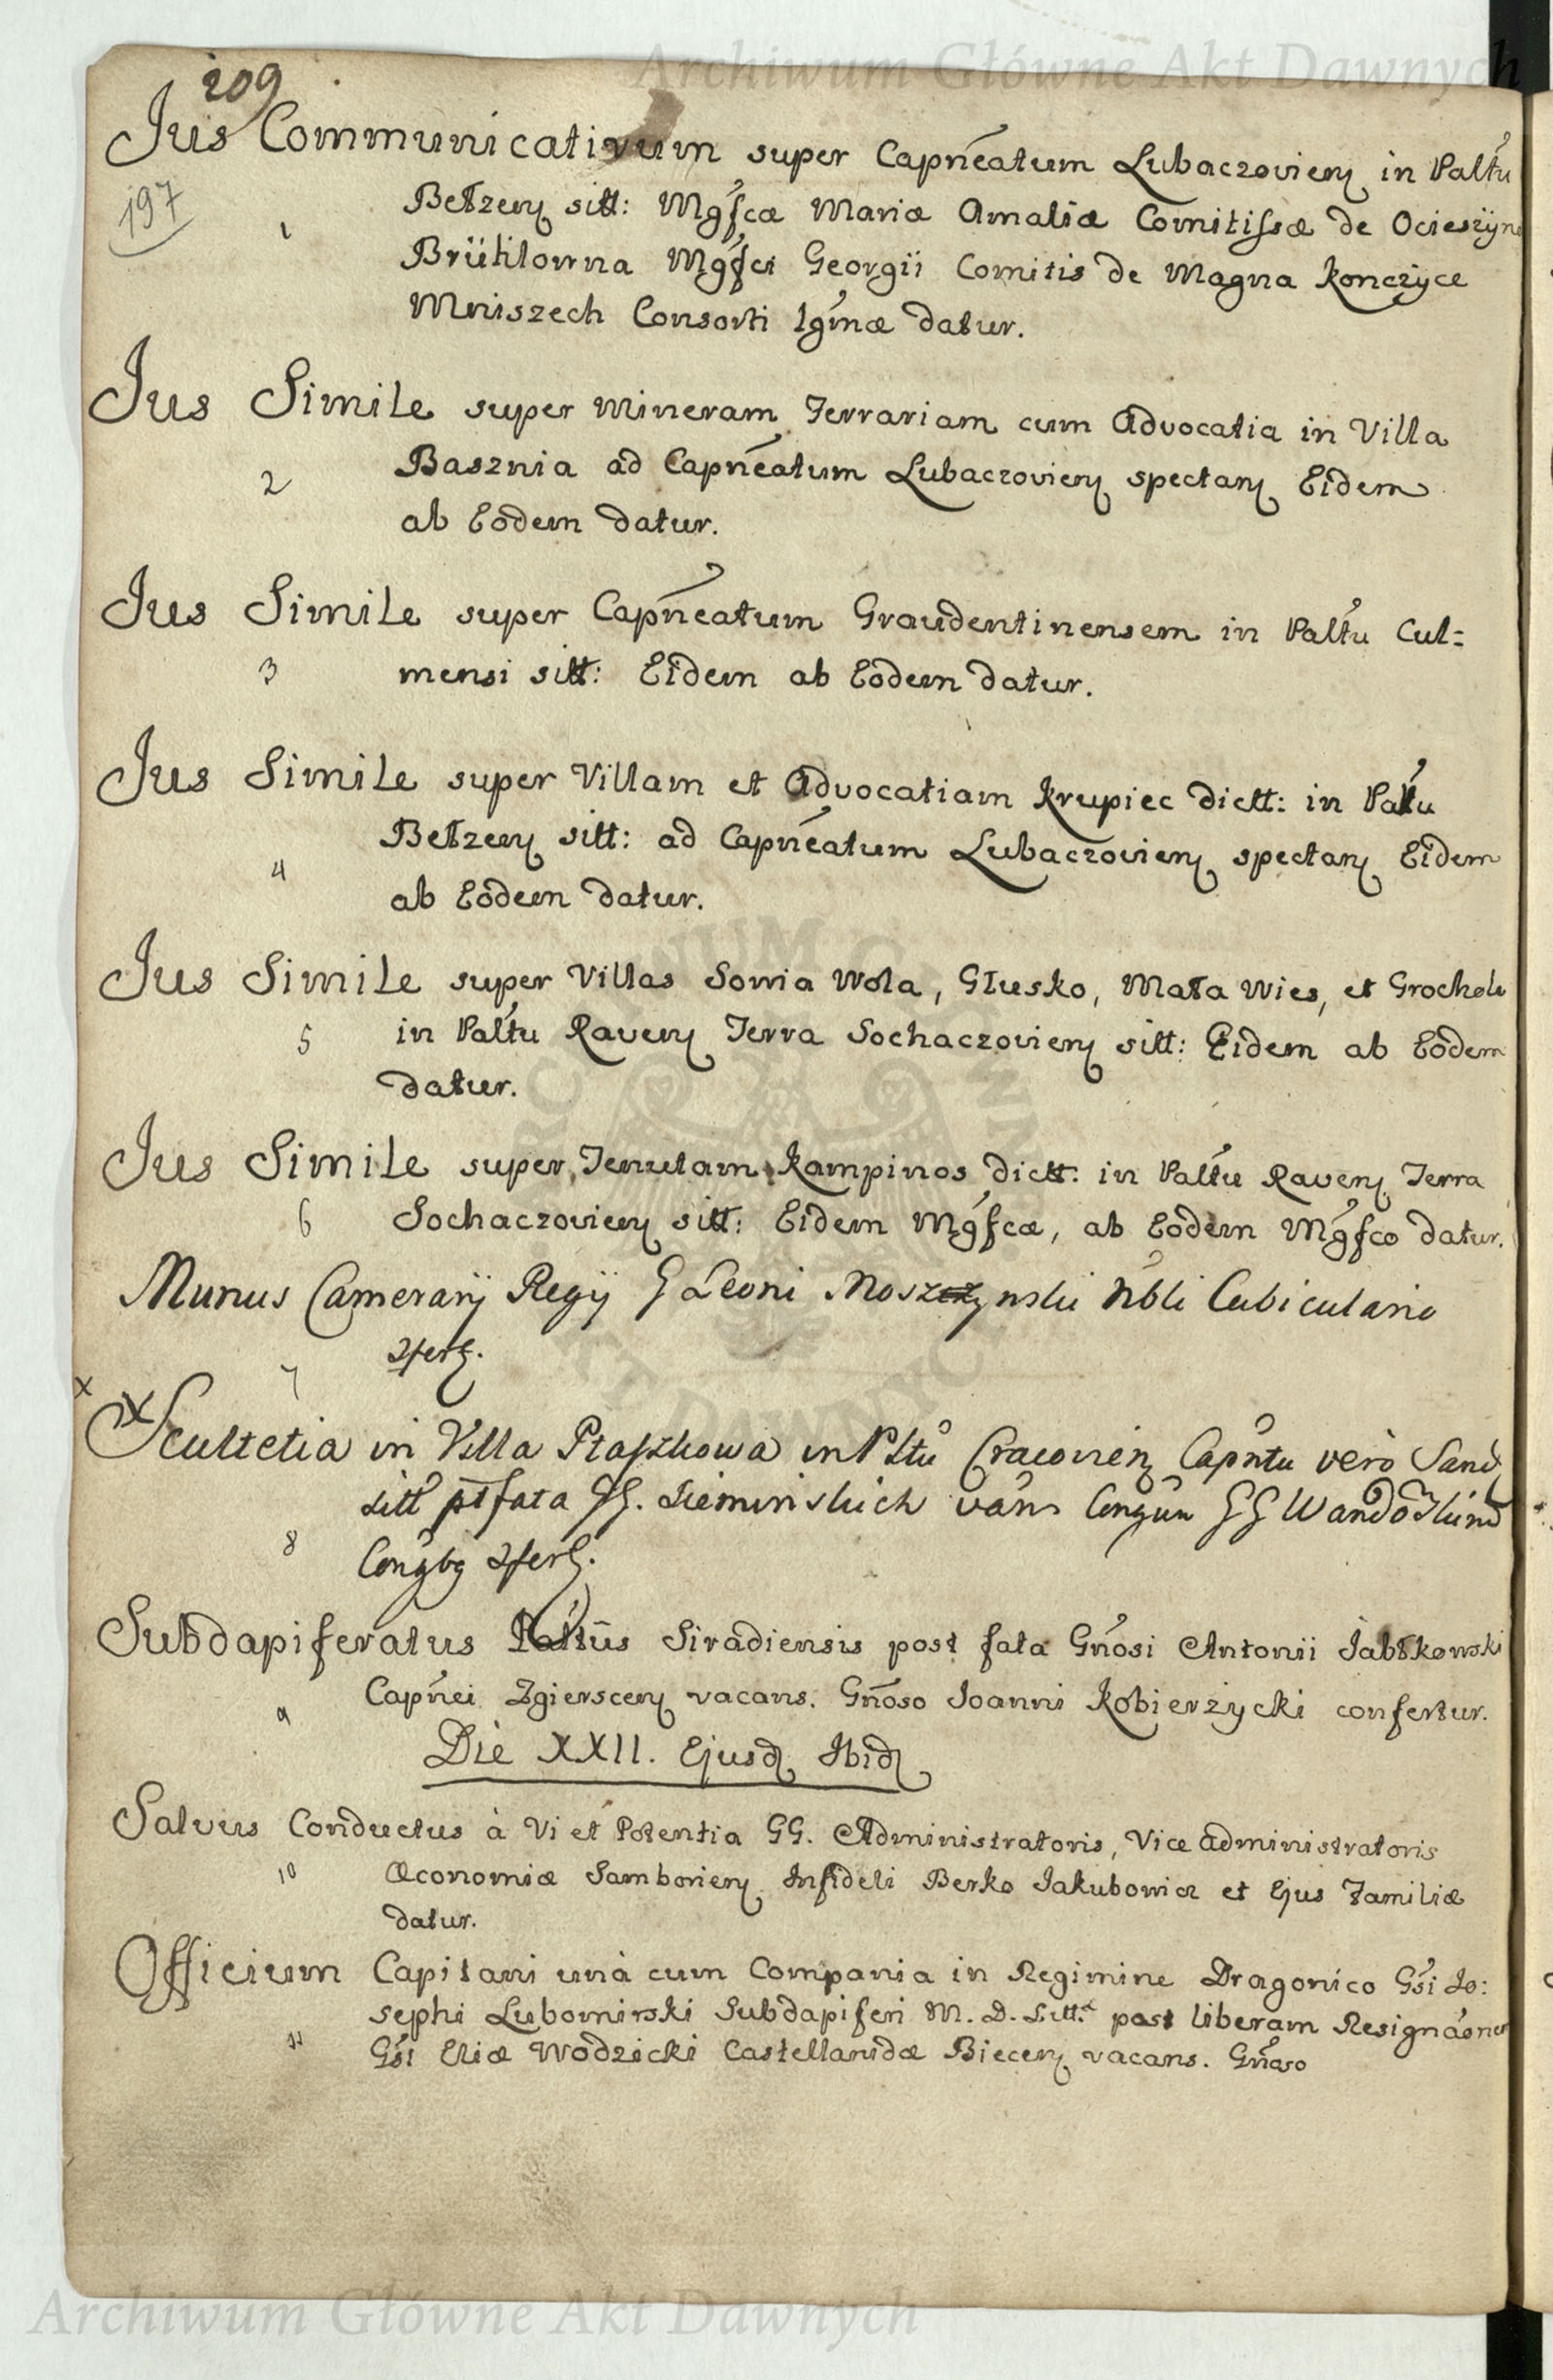 Archiwum Główne Akt Dawnych
209
Jus Communicativum super Capńeatum Lubaczovien in Paltu
197
1
Bełzen sitt: Mgfcæ Mariæ Amaliæ Comitissæ de Ocieszyn
Brühlowna Mgfci Georgii Comitis de Magna Kończyce
Mniszech Consorti lgmæ datur.
Jus Simile super Mineram Ferrariam cum Advocatia in Villa
2
Basznia ad Capńeatum Lubaczovien spectan Eidem
ab Eodem datur.
Jus Simile super Capńeatum Graudentinensem in Paltu Cul=
3
mensi sitt: Eidem ab Eodem datur.
Jus Simile super Villam et Advocatiam Krupiec dictt: in Paltu
4
Bełzen sitt: ad Capńeatum Lubaczovien spectan Eidem
ab Eodem datur.
Jus Simile super Villas Sowia Wola, Głusko, Mała Wies, et Grochole
5
in Paltu Raven Terra Sochaczovien sitt: Eidem ab Eodem
datur.
Jus Simile super Tenutam Kampinos dictt: in Paltu Raven Terra
6
Sochaczovien sitt: Eidem Mgfcæ, ab Eodem Mgfco datur.
Munus Camerarij Regij G Leoni Moszczynski Nbli Cubiculario
7
x
Scultetia in Villa Ptaszkowa in Pltu Cracovien Capntu vero Sand
sitt fata GG. Sieminskich GG
8
Subdapiferatus Paltus Siradiensis post fata Gnosi Antonii Jabłkowski
9
Capnei Zgierscen vacans. Gnoso Joanni Kobierzycki confertur.
Die XXII. Ejusd Ibid
Salvus Conductus à Vi et Potentia GG. Administratoris, Vice Administratoris
10
Œconomiæ Samborien Infideli Berko Jakubowicz et Ejus Familiæ
datur.
Officium Capitani unà cum Compania in Regimine Dragonico Gsi Jo:
sephi Lubomirski Subdapiferi M. D. Litt. post liberam Resignaonem
11
Gsi Eliæ Wodzicki Castellanidæ Biecen vacans. Gnoso
Archiwum Główne Akt Dawnych